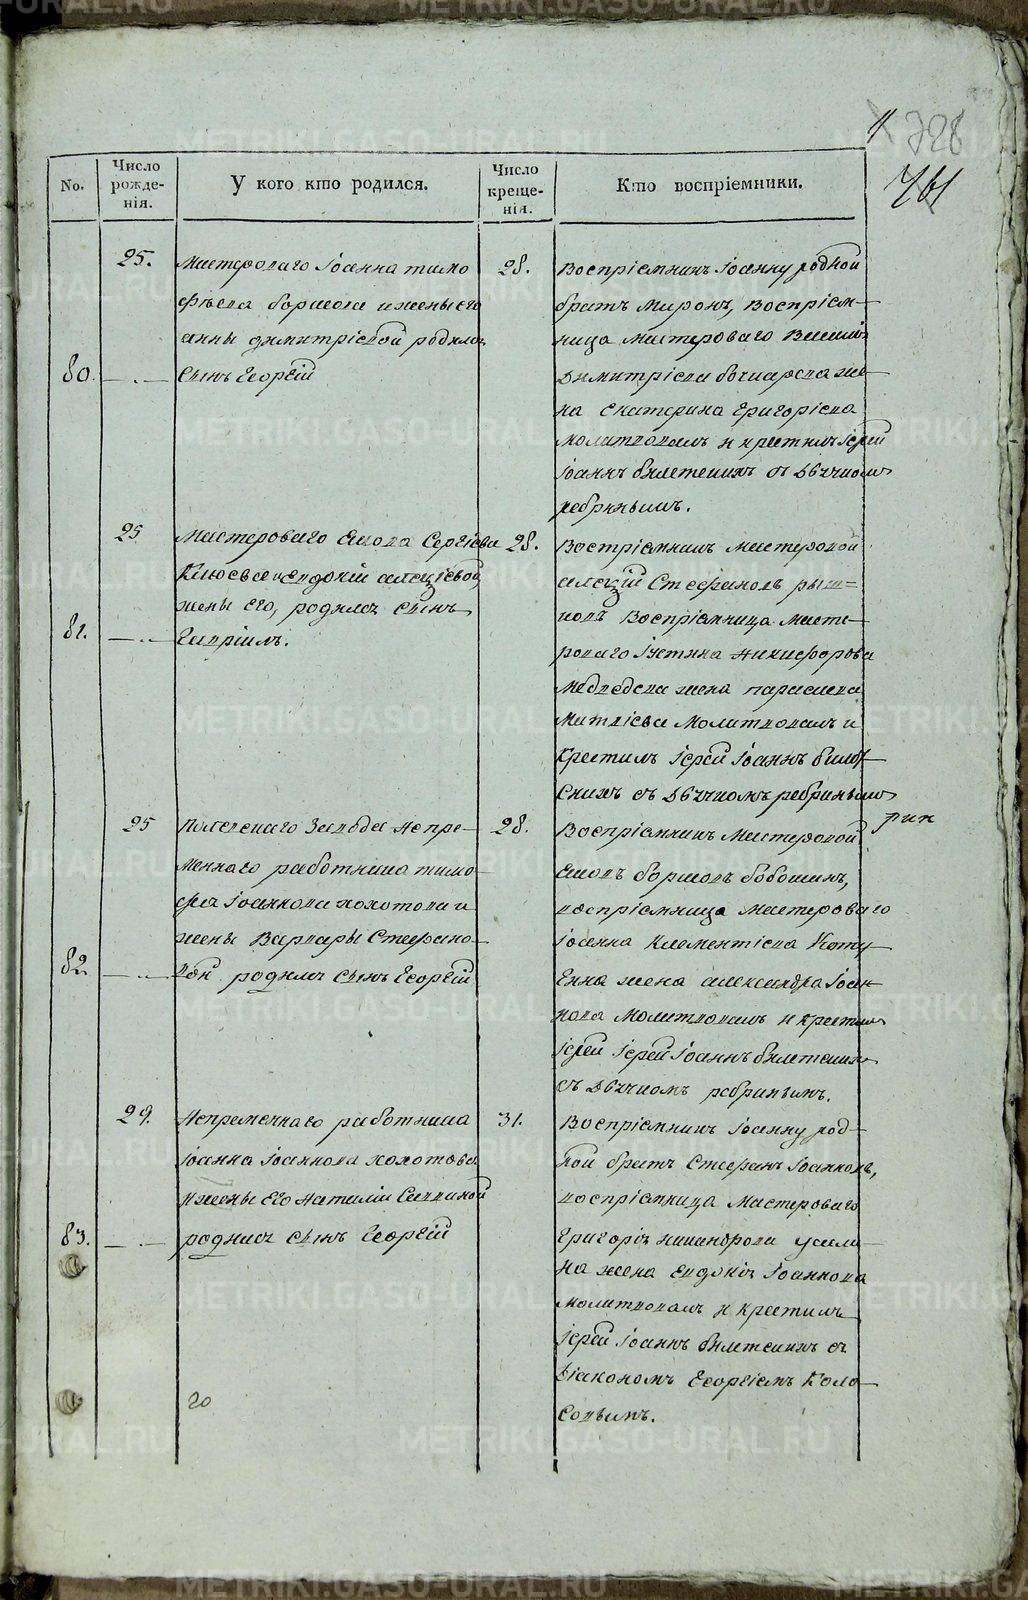 728
761
No.
Число рожде-нія.
У кого кто родился.
Число креще-нія.
Кто воспріемники.
80.
25.
Мастероваго Іоанна тимо
фѣева бормова и жены его
анны димитріевой родился
Сынъ Георгій
28.
Воспріемникъ Іоанну родной
братъ Миронъ, Воспріем-
ница мастероваго Василія
Димитріева бочкарева же-
на екатерина григоріева
молитвовалъ и крестилъ іерей
Іоаннъ съ дьячкомъ
ребринымъ.
81.
25
Мастероваго Сергіева
Клюева и Евдокіи алексіевой
жены его, родился сынъ
Гавріилъ.
28.
Воспріемникъ мастеровой
алексій Стефановъ
Воспріемница масте-
роваго Іустина никифорова
медведева жена параскева
молитвовалъ и
крестилъ іерей Іоаннъ
съ дьячкомъ ребринымъ
82
25
Полевскаго Завода непре-
меннаго работника тимо-
фея Іоаннова хохотова и
жены Варвары Стефано-
вой родился сынъ Георгій
28.
Воспріемникъ мастеровой
бормовъ
воспріемница мастероваго
Іоанна Климентіева
жена александра Іоан-
нова молитвовалъ и крестилъ
іерей іерей Іоаннъ
съ дьячкомъ ребринымъ.
83.
29.
Непременнаго работника
Іоанна Іоаннова хохотова
и жены его наталіи Саввиной
родился сынъ Георгій
31.
Воспріемникъ Іоанну род-
ной братъ Стефанъ Іоанновъ,
воспріемница мастероваго
Григорія никанорова
жена евдокія Іоаннова
молитвовалъ и крестилъ
іерей Іоаннъ съ
діакономъ Георгіемъ Коло-
совымъ.
20
METRIKI.GASO-URAL.RU